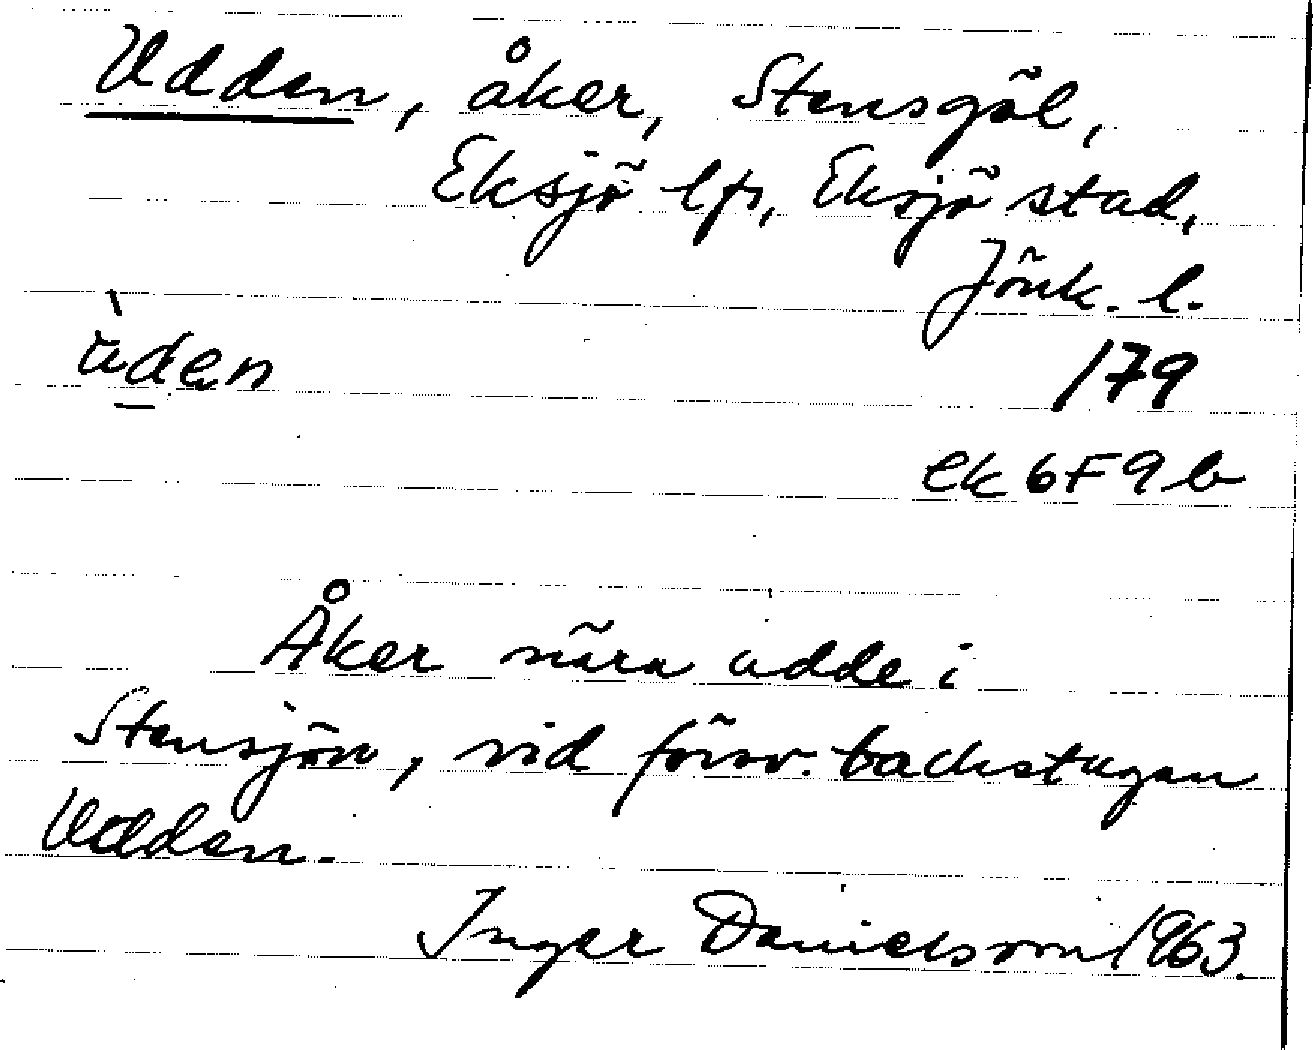 Udden, åker, Stensgöl,
Eksjö lfs, Eksjö stad,
Jönk. l.
ùden
179
ek 6F9b
Åker nära udde i
Stensjön, vid försv. backstugan
Udden.
Inger Danielsson 1963.